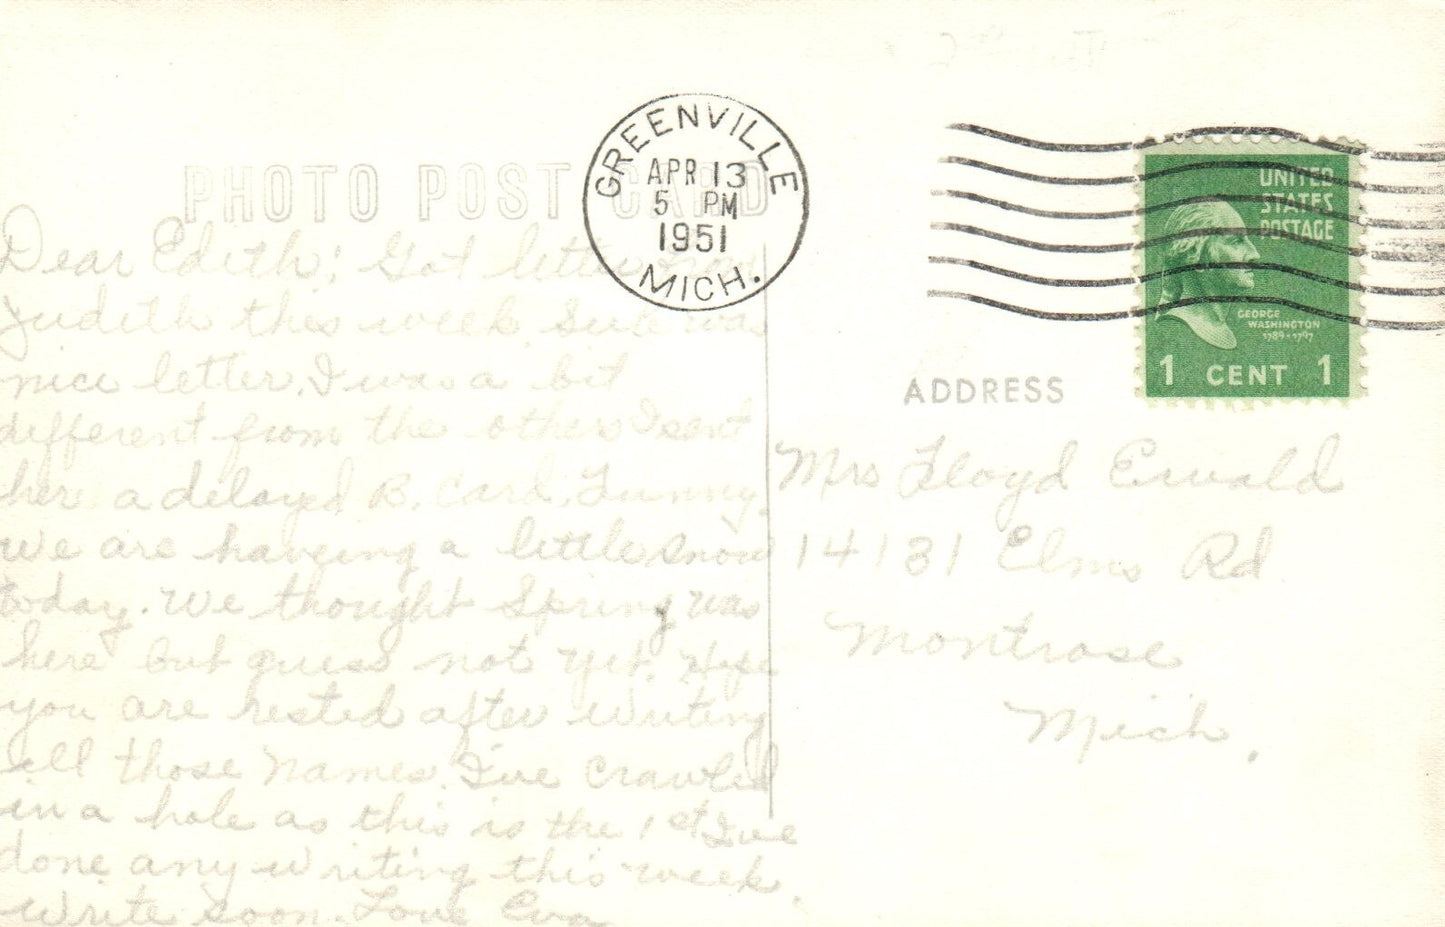 PHOTO POST CARD
GREENVILLE
APR 13
5 PM
1951
MICH.
UNITED
STATES
POSTAGE
GEORGE
WASHINGTON
1789-1797
1 CENT 1
Dear Edith: Got letter from
Judith this week. Sure was
nice letter. I was a bit
different from the others I sent
her a delayed B. Card. Funny.
We are having a little snow
today. We thought Spring was
here but guess not yet. Hope
you are rested after writing
all those names. I've crawled
in a hole as this is the 1st I've
done any writing this week.
Write soon. Love Eva
ADDRESS
Mrs Floyd Ewald
14131 Elms Rd
Montrose
Mich.